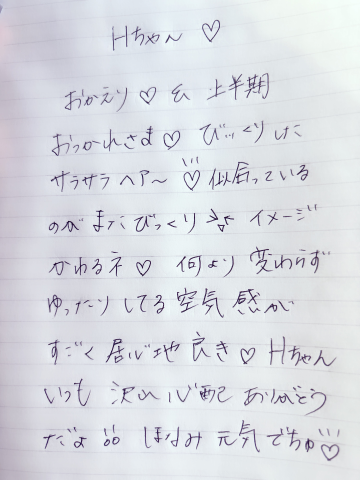 Hちゃん ♡
おかえり ♡ & 上半期
おつかれさま ♡ びっくりした
サラサラヘア〜 ♡ 似合っている
のがまたびっくり イメージ
かわるネ ♡ 何より 変わらず
ゆったりしてる空気感が
すごく居心地良き ♡ Hちゃん
いつも 沢山 心配 ありがとう
だよ ほなみ 元気でちゅ ♡